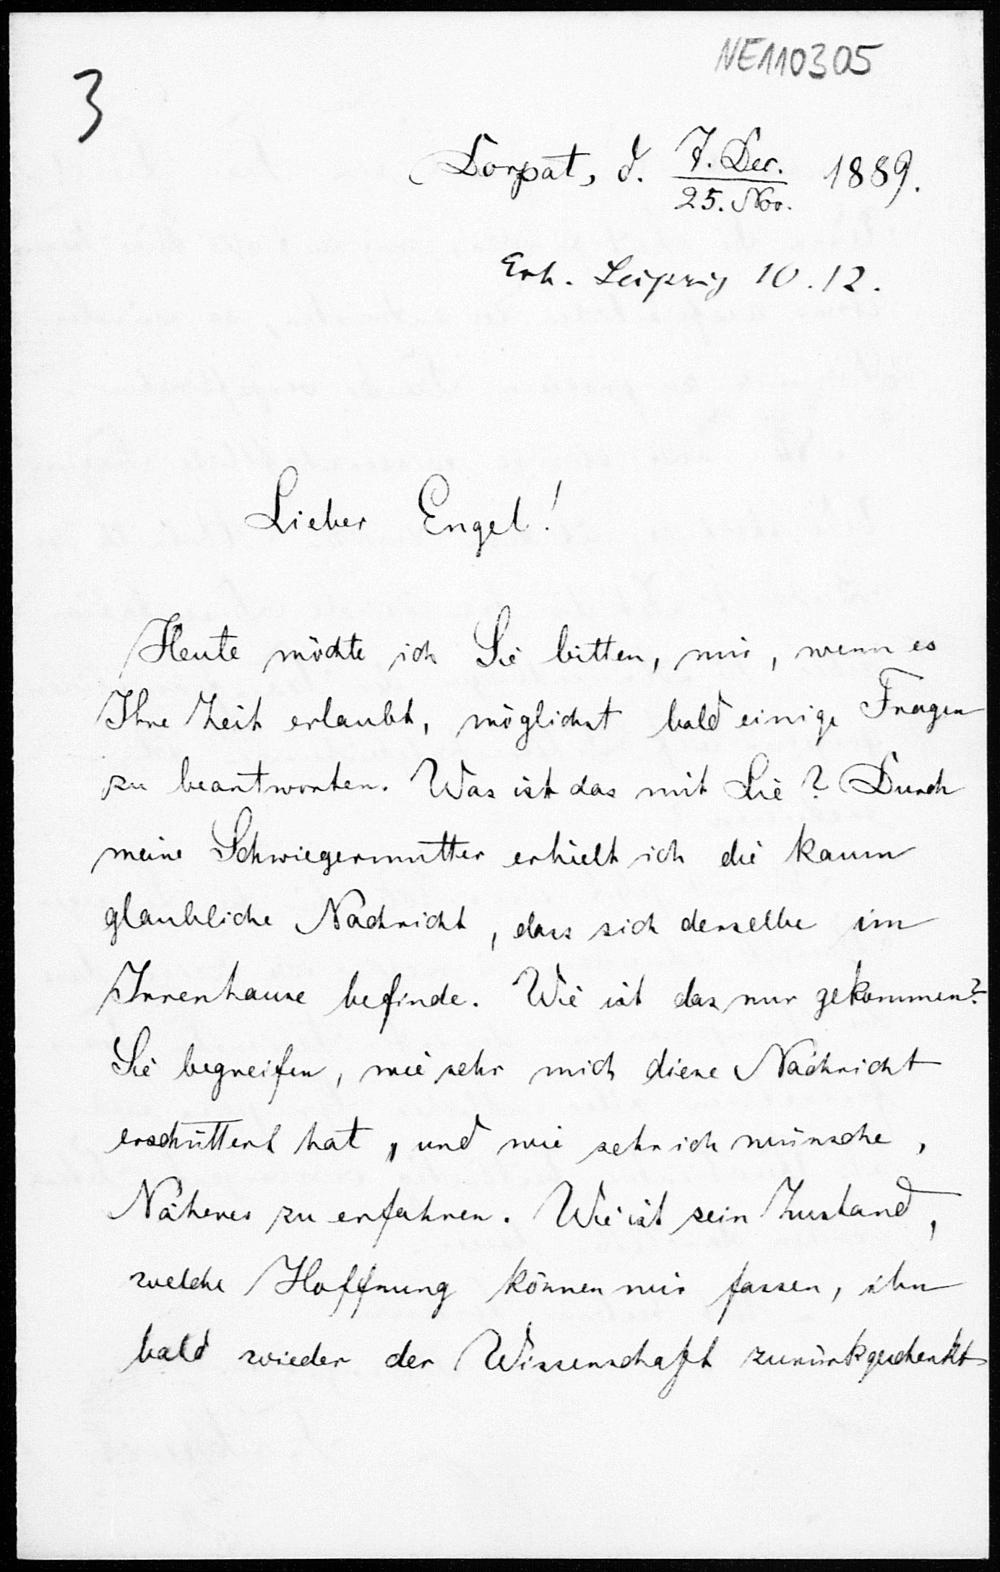 NE110305
3
Dorpat, d. 7. Dec. / 25. Nov. 1889.
Erh. Leipzig 10.12.
Lieber Engel!
Heute möchte ich Sie bitten, mir, wenn es
Ihre Zeit erlaubt, möglichst bald einige Fragen
zu beantworten. Was ist das mit Lie? Durch
meine Schwiegermutter erhielt ich die kaum
glaubliche Nachricht, dass sich derselbe im
Irrenhause befinde. Wie ist das nur gekommen?
Sie begreifen, wie sehr mich diese Nachricht
erschüttert hat, und wie sehr ich wünsche,
Näheres zu erfahren. Wie ist sein Zustand,
welche Hoffnung können wir fassen, ihn
bald wieder der Wissenschaft zurückgeschenkt